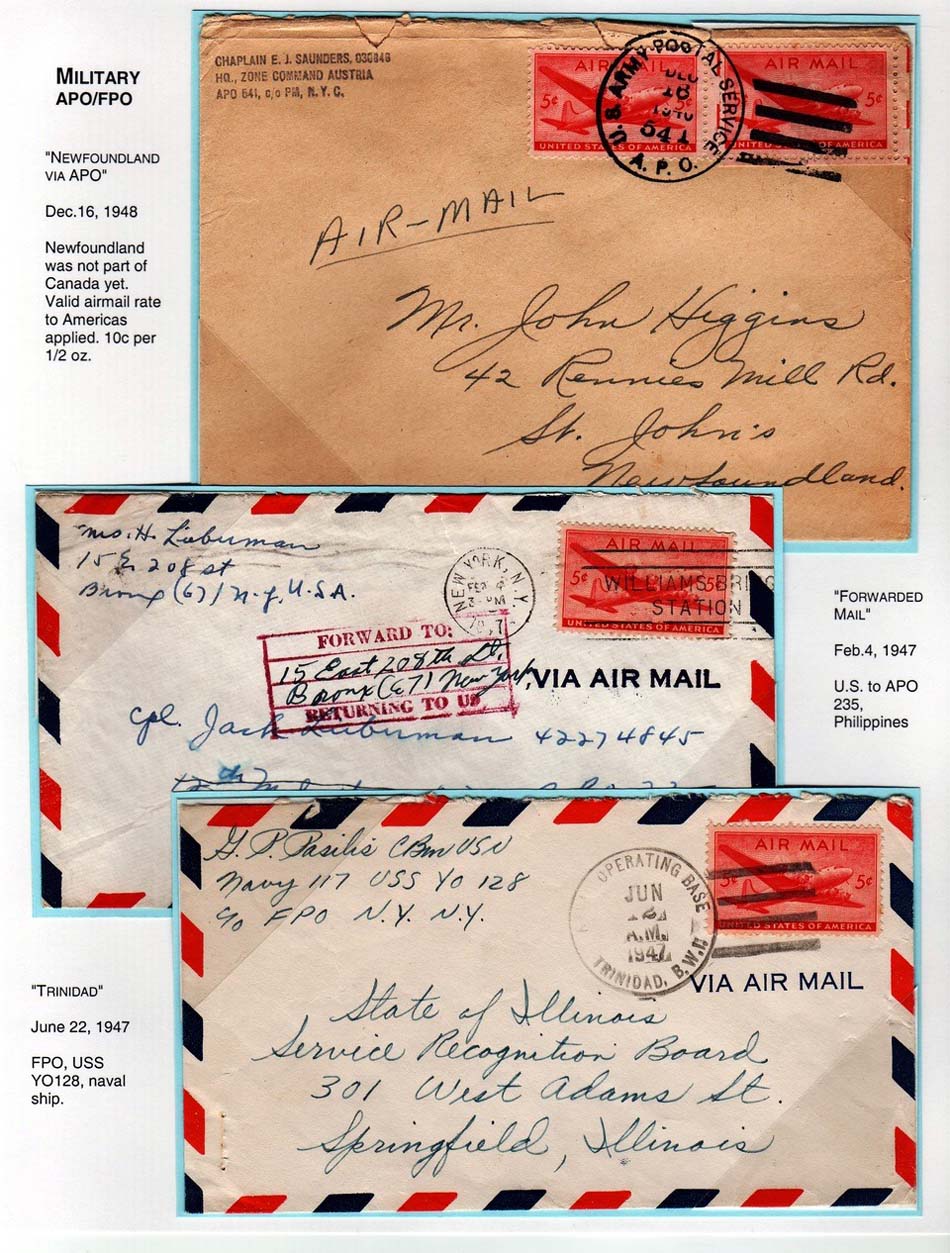 MILITARY
APO/FPO
"NEWFOUNDLAND
VIA APO"
Dec.16, 1948
Newfoundland
was not part of
Canada yet.
Valid airmail rate
to Americas
applied. 10c per
1/2 oz.
CHAPLAIN E. J. SAUNDERS, 030846
HQ., ZONE COMMAND AUSTRIA
APO 541, c/o PM, N.Y.C.
AIR MAIL
5¢ 5¢
UNITED STATES OF AMERICA
AIR MAIL
5¢
UNITED STATES OF AMERICA
U. S. ARMY POSTAL SERVICE
DEC
16
541
A. P. O.
AIR-MAIL
Mr. John Higgins
42 Rennies Mill Rd.
St. John's
Newfoundland.
H. Lieberman
15 E 208 st
Bronx (67) N.Y, U.S.A.
NEW YORK, N.Y.
FEB 4
AIR MAIL
5¢ 5¢
UNITED STATES OF AMERICA
WILLIAMS BRIDG
STATION
FORWARD TO:
15 East 208th St.
Bronx (67) New York,
RETURNING TO US
VIA AIR MAIL
Cpl. Jack Lieberman 42274845
"FORWARDED
MAIL"
Feb.4, 1947
U.S. to APO
235,
Philippines
G. P. Pasilis CBM USN
Navy 117 USS YO 128
c/o FPO N.Y. N.Y.
OPERATING BASE
JUN
A.M.
1947
TRINIDAD, B.W.I.
AIR MAIL
5¢ 5¢
UNITED STATES OF AMERICA
VIA AIR MAIL
State of Illinois
Service Recognition Board
301 West Adams St.
Springfield, Illinois
"TRINIDAD"
June 22, 1947
FPO, USS
YO128, naval
ship.